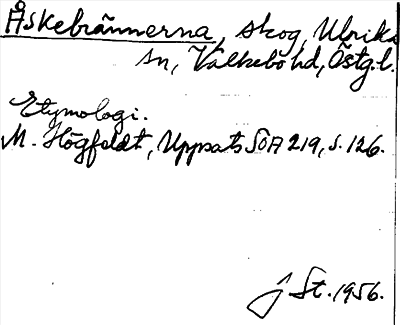 Åskebrännerna, skog, Ulrika
sn, Valkebo hd, Östg.l.
Etymologi.
M. Högfeldt, Uppsats SOA 219, s. 126.
J St. 1956.